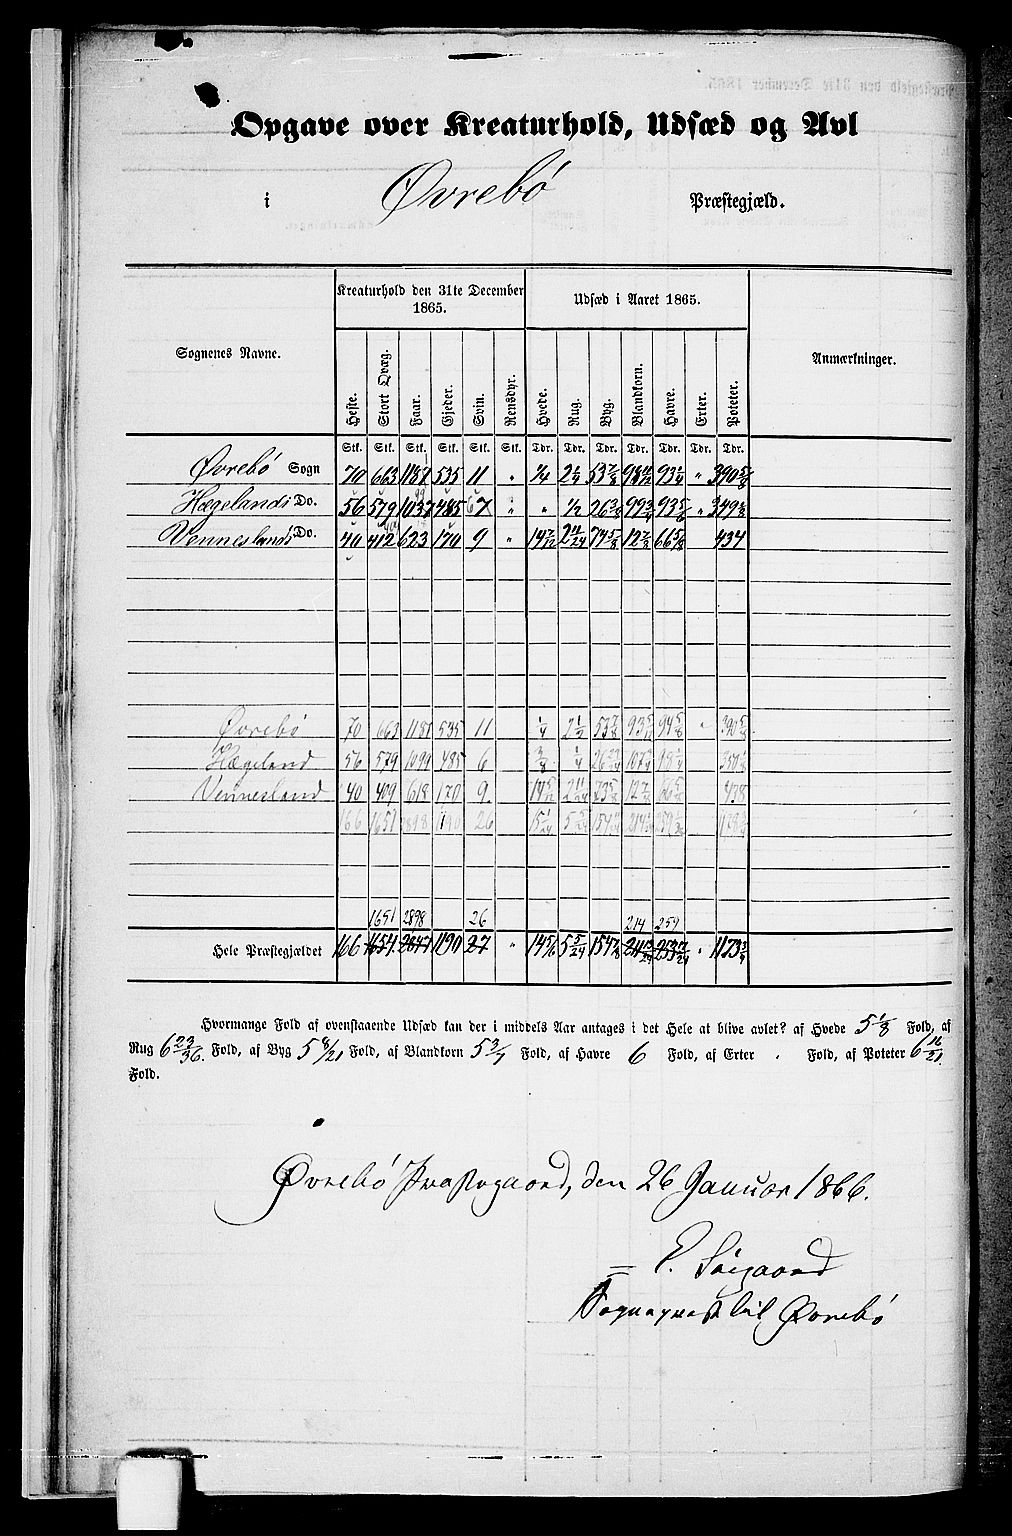 Opgave over Kreaturhold, Udsæd og Avl
i Øvrebö Præstegjæld.
Sognenes Navne. Kreaturhold den 31te December 1865. Udsæd i Aaret 1865. Anmærkninger.
Heste. Stort Qvæg. Faar. Gjeder. Svin. Rensdyr. Hvede. Rug. Byg. Blandkorn. Havre. Erter. Poteter.
Stk. Stk. Stk. Stk. Stk. Stk. Tdr. Tdr. Tdr. Tdr. Tdr. Tdr. Tdr.
Øvrebö Sogn 70 663 1187 535 11 " 1/4 53 7/8 " 390 5/8
Hægelands Do. 56 579 485 7 " " 1/2 "
Venneslands Do. 40 412 623 170 9 " 14 7/12 2 11/24 74 5/8 12 7/8 66 5/8 434
Øvrebö 70 663 1181 535 11 1/4 2 1/2 53 7/8 "
Hægeland 56 579 1099 485 6 3/8 1/4
Vennesland 40 409 618 170 9 14 5/12 2 11/24 438
166 1651 2898 1190 26
1651 2898 26 214 259
Hele Præstegjældet 166 1654 2847 1190 27 " 14 5/6 5 5/24 154 7/8 "
Hvormange Fold af ovenstaaende Udsæd kan der i middels Aar antages i det Hele at blive avlet? af Hvede 5 1/8 Fold, af
Rug 6 23/36. Fold, af Byg 5 8/21 Fold, af Blandkorn 5 3/7 Fold, af Havre 6 Fold, af Erter " Fold, af Poteter 6 16/21.
Fold.
Øvrebö Præstegaard, den 26 Januar 1866.
Sognepræst til Øvrebö